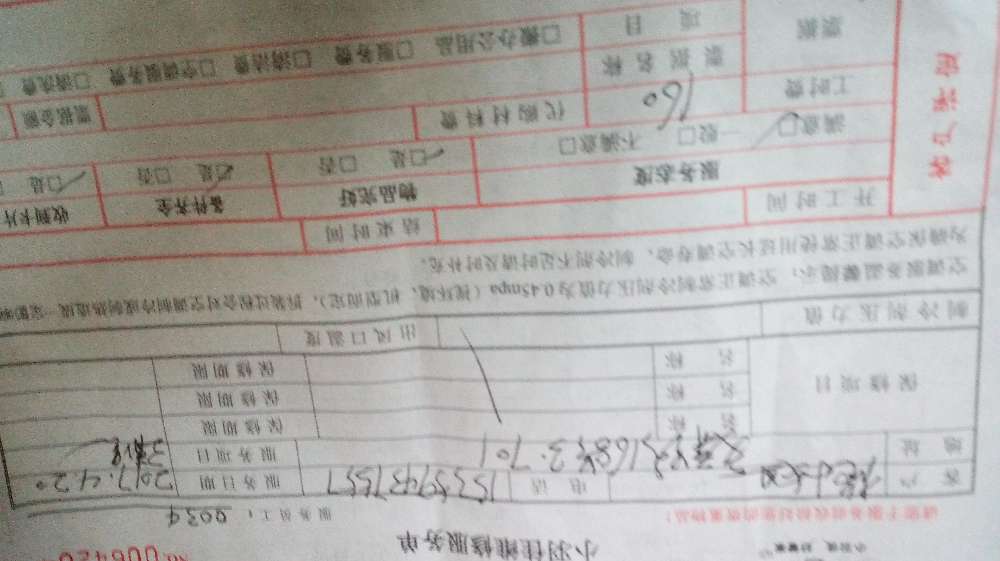 小羽佳维修服务单
No 006420
请您于服务前收拾好您的贵重物品!
服务员工: 0039
客户 电话 服务日期 2017.4.20
地址 服务项目
保修项目 名称 保修期限
名称 保修期限
名称 保修期限
制冷剂压力值 出风口温度
空调服务温馨提示:空调正常制冷剂压力值为0.45mpa(视环境、机型而定),拆装过程会对空调制冷或制热造成一定影响
为确保空调正常使用延长空调寿命,制冷剂不足时请及时补充。
开工时间 结束时间
服务态度 物品完好 备件齐全 收到卡片
满意□ 一般□ 不满意□ □是 □否 □是 □否 □是
客户评定
工时费 160 代购材料费 票据金额
票据 票据名称
项目 □搬办公用品 □服务费 □清洁费 □空调服务费 □清洗费